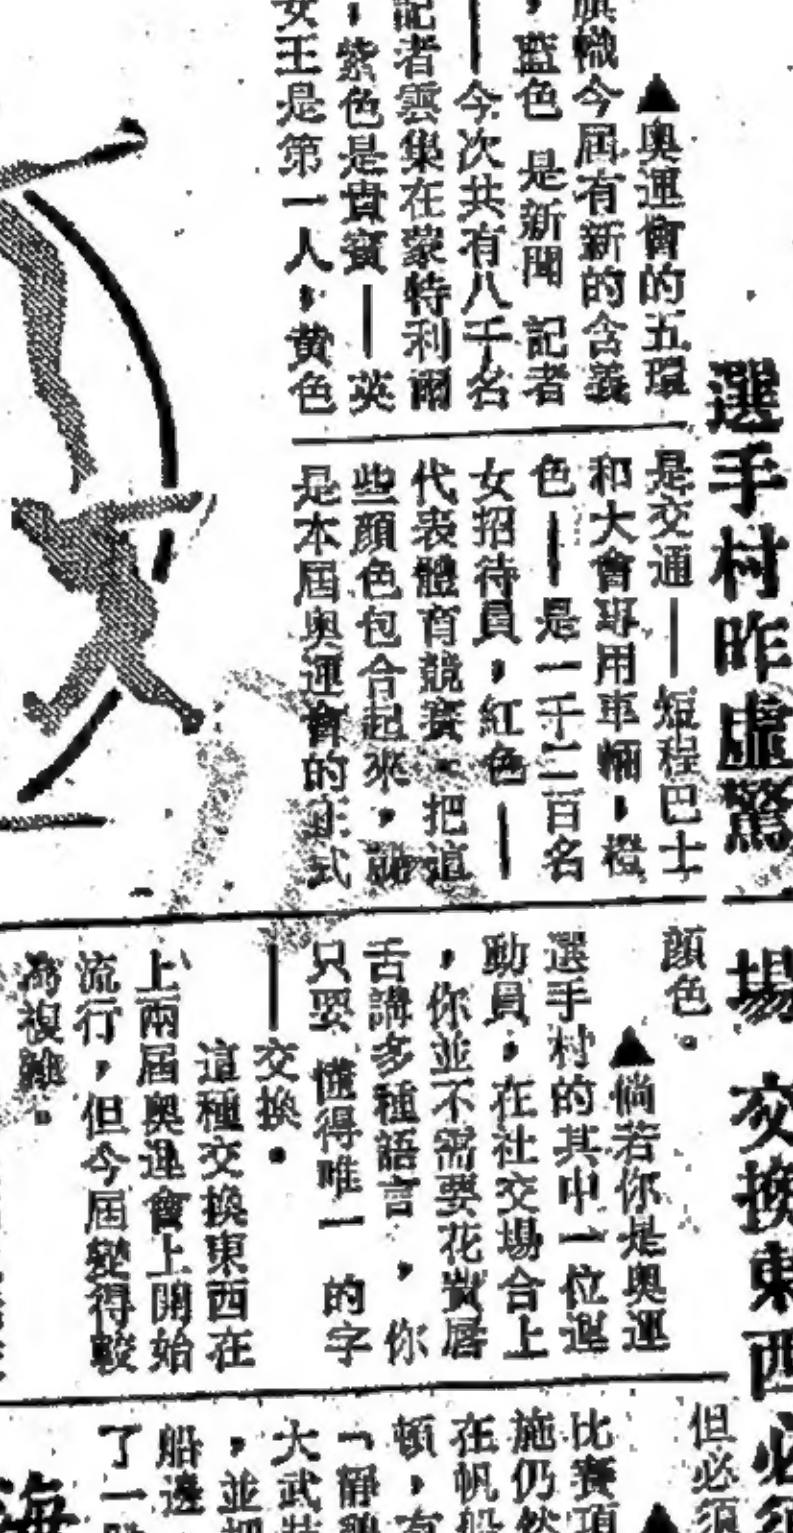 選手村昨虛驚一場 交換東西必須
▲奧運會的五環
旗幟今屆有新的含義
，藍色 是新聞 記者
——今次共有八千名
記者雲集在蒙特利爾
，紫色是貴賓——英
女王是第一人，黄色
是交通——短程巴士
和大會專用車輛，橙
色——是一千二百名
女招待員，紅色——
代表體育競賽。把這
些顏色包合起來，
是本屆奧運會的正式
顏色。
▲倘若你是奧運
選手村的其中一位運
動員，在社交場合上
，你並不需要花費唇
舌講多種語言，你
只要 懂得唯一 的字
——交換。
這種交換東西在
上兩屆奧運會上開始
流行，但今屆變得較
為複雜。
但必須
比賽項
施仍然
在帆船
頓，有
大武裝
，並把
船邊
了一
海